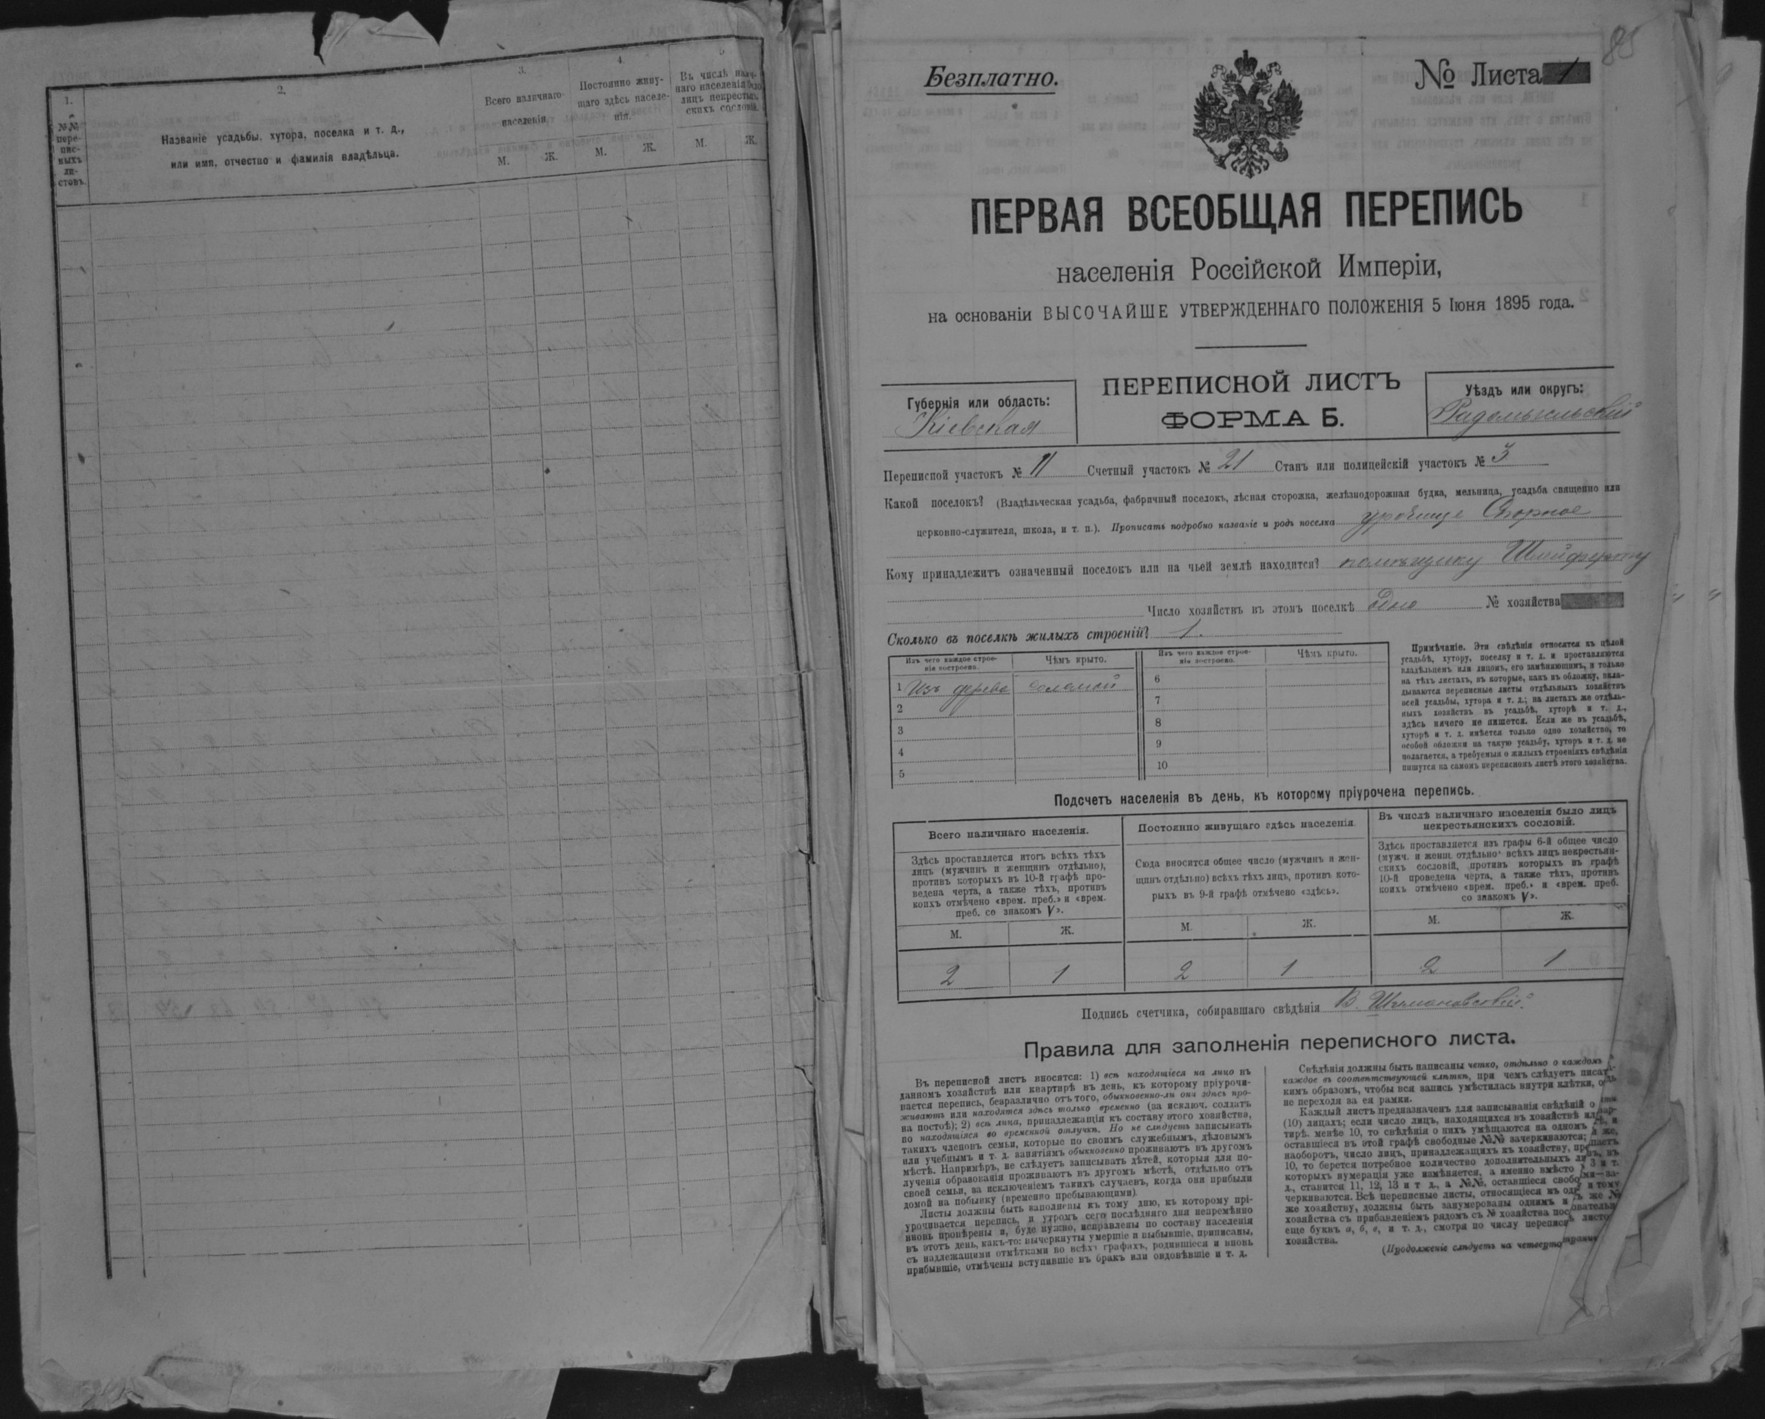 1.
№№ переписныхъ листовъ.
2.
Названіе усадьбы, хутора, поселка и т. д.,
или имя, отчество и фамилія владѣльца.
3.
Всего наличнаго
населенія.
М. Ж.
4.
Постоянно живу-
щаго здѣсь населе-
нія.
М. Ж.
5
Въ числѣ налич-
наго населенія было
лицъ некрестьян-
скихъ сословій.
М. Ж.
85
Безплатно.
№ Листа 1
ПЕРВАЯ ВСЕОБЩАЯ ПЕРЕПИСЬ
населенія Россійской Имперіи,
на основаніи ВЫСОЧАЙШЕ УТВЕРЖДЕННАГО ПОЛОЖЕНІЯ 5 Іюня 1895 года.
Губернія или область:
Кіевская
ПЕРЕПИСНОЙ ЛИСТЪ
ФОРМА Б.
Уѣздъ или округъ:
Радомысльскій
Переписной участокъ № 11 Счетный участокъ № 21 Станъ или полицейскій участокъ № 3
Какой поселокъ? (Владѣльческая усадьба, фабричный поселокъ, лѣсная сторожка, желѣзнодорожная будка, мельница, усадьба священно или
церковно-служителя, школа, и т. п.). Прописать подробно названіе и родъ поселка урочище Спорное
Кому принадлежитъ означенный поселокъ или на чьей землѣ находится? помѣщику
Число хозяйствъ въ этомъ поселкѣ одно № хозяйства
Сколько въ поселкѣ жилыхъ строеній? 1.
Изъ чего каждое строе-
ніе построено.
Чѣмъ крыто.
Изъ чего каждое строе-
ніе построено.
Чѣмъ крыто.
1 Изъ дерева соломой
2
3
4
5
6
7
8
9
10
Примѣчаніе. Эти свѣдѣнія относятся къ цѣлой
усадьбѣ, хутору, поселку и т. д. и проставляются
владѣльцемъ или лицомъ, его замѣняющимъ, и только
на тѣхъ листахъ, въ которые, какъ въ обложку, вкла-
дываются переписные листы отдѣльныхъ хозяйствъ
всей усадьбы, хутора и т. д.; на листахъ же отдѣль-
ныхъ хозяйствъ въ усадьбѣ, хуторѣ и т. д.,
здѣсь ничего не пишется. Если же въ усадьбѣ,
хуторѣ и т. д. имѣется только одно хозяйство, то
особой обложки на такую усадьбу, хуторъ и т. д. не
полагается, а требуемыя о жилыхъ строеніяхъ свѣдѣнія
пишутся на самомъ переписномъ листѣ этого хозяйства.
Подсчетъ населенія въ день, къ которому пріурочена перепись.
Всего наличнаго населенія.
Здѣсь проставляется итогъ всѣхъ тѣхъ
лицъ (мужчинъ и женщинъ отдѣльно),
противъ которыхъ въ 10-й графѣ про-
ведена черта, а также тѣхъ, противъ
коихъ отмѣчено «врем. преб.» и «врем.
преб. со знакомъ V».
Постоянно живущаго здѣсь населенія
Сюда вносится общее число (мужчинъ и жен-
щинъ отдѣльно) всѣхъ тѣхъ лицъ, противъ кото-
рыхъ въ 9-й графѣ отмѣчено «здѣсь».
Въ числѣ наличнаго населенія было лицъ
некрестьянскихъ сословій.
Здѣсь проставляется изъ графы 6-й общее число
(мужч. и женщ. отдѣльно) всѣхъ лицъ некрестьян-
скихъ сословій, противъ которыхъ въ графѣ
10-й проведена черта, а также тѣхъ, противъ
коихъ отмѣчено «врем. преб.» и «врем. преб.
со знакомъ V».
М. Ж. М. Ж. М. Ж.
2 1 2 1 2 1
Подпись счетчика, собиравшаго свѣдѣнія
Правила для заполненія переписного листа.
Въ переписной листъ вносятся: 1) всѣ находящіеся на лицо въ
данномъ хозяйствѣ или квартирѣ въ день, къ которому пріурочи-
вается перепись, безразлично отъ того, обыкновенно-ли они здѣсь про-
живаютъ или находятся здѣсь только временно (за исключ. солдатъ
на постоѣ); 2) всѣ лица, принадлежащія къ составу этого хозяйства,
но находящіяся во временной отлучкѣ. Но не слѣдуетъ записывать
такихъ членовъ семьи, которые по своимъ служебнымъ, дѣловымъ
или учебнымъ и т. д. занятіямъ обыкновенно проживаютъ въ другомъ
мѣстѣ. Напримѣръ, не слѣдуетъ записывать дѣтей, которыя для по-
лученія образованія проживаютъ въ другомъ мѣстѣ, отдѣльно отъ
своей семьи, за исключеніемъ такихъ случаевъ, когда они прибыли
домой на побывку (временно пребывающими)
Листы должны быть заполнены къ тому дню, къ которому прі-
урочивается перепись, и утромъ сего послѣдняго дня непремѣнно
вновь провѣрены и, буде нужно, исправлены по составу населенія
въ этотъ день, какъ-то: вычеркнуты умершіе и выбывшіе, приписаны,
съ надлежащими отмѣтками во всѣхъ графахъ, родившіеся и вновь
прибывшіе, отмѣчены вступившіе въ бракъ или овдовѣвшіе и т. д.
Свѣдѣнія должны быть написаны четко, отдѣльно о каждомъ
каждое въ соотвѣтствующей клѣткѣ, при чемъ слѣдуетъ писать
кимъ образомъ, чтобы вся запись умѣстилась внутри клѣтки,
не переходя за ея рамки.
Каждый листъ предназначенъ для записыванія свѣдѣній о
(10) лицахъ; если число лицъ, находящихся въ хозяйствѣ или
тирѣ. менѣе 10, то свѣдѣнія о нихъ умѣщаются на одномъ
оставшіеся въ этой графѣ свободные №№ зачеркиваются;
наоборотъ, число лицъ, принадлежащихъ къ хозяйству,
10, то берется потребное количество дополнительныхъ
которыхъ нумерація уже измѣняется, а именно вмѣсто
д., ставится 11, 12, 13 и т д., а №№, оставшіеся
черкиваются. Всѣ переписные листы, относящіеся къ
же хозяйству, должны быть занумерованы однимъ и
хозяйства съ прибавленіемъ рядомъ съ № хозяйства
еще буквъ а, б, в, и т. д., смотря по числу
хозяйства.
(Продолженіе слѣдуетъ на четвертой